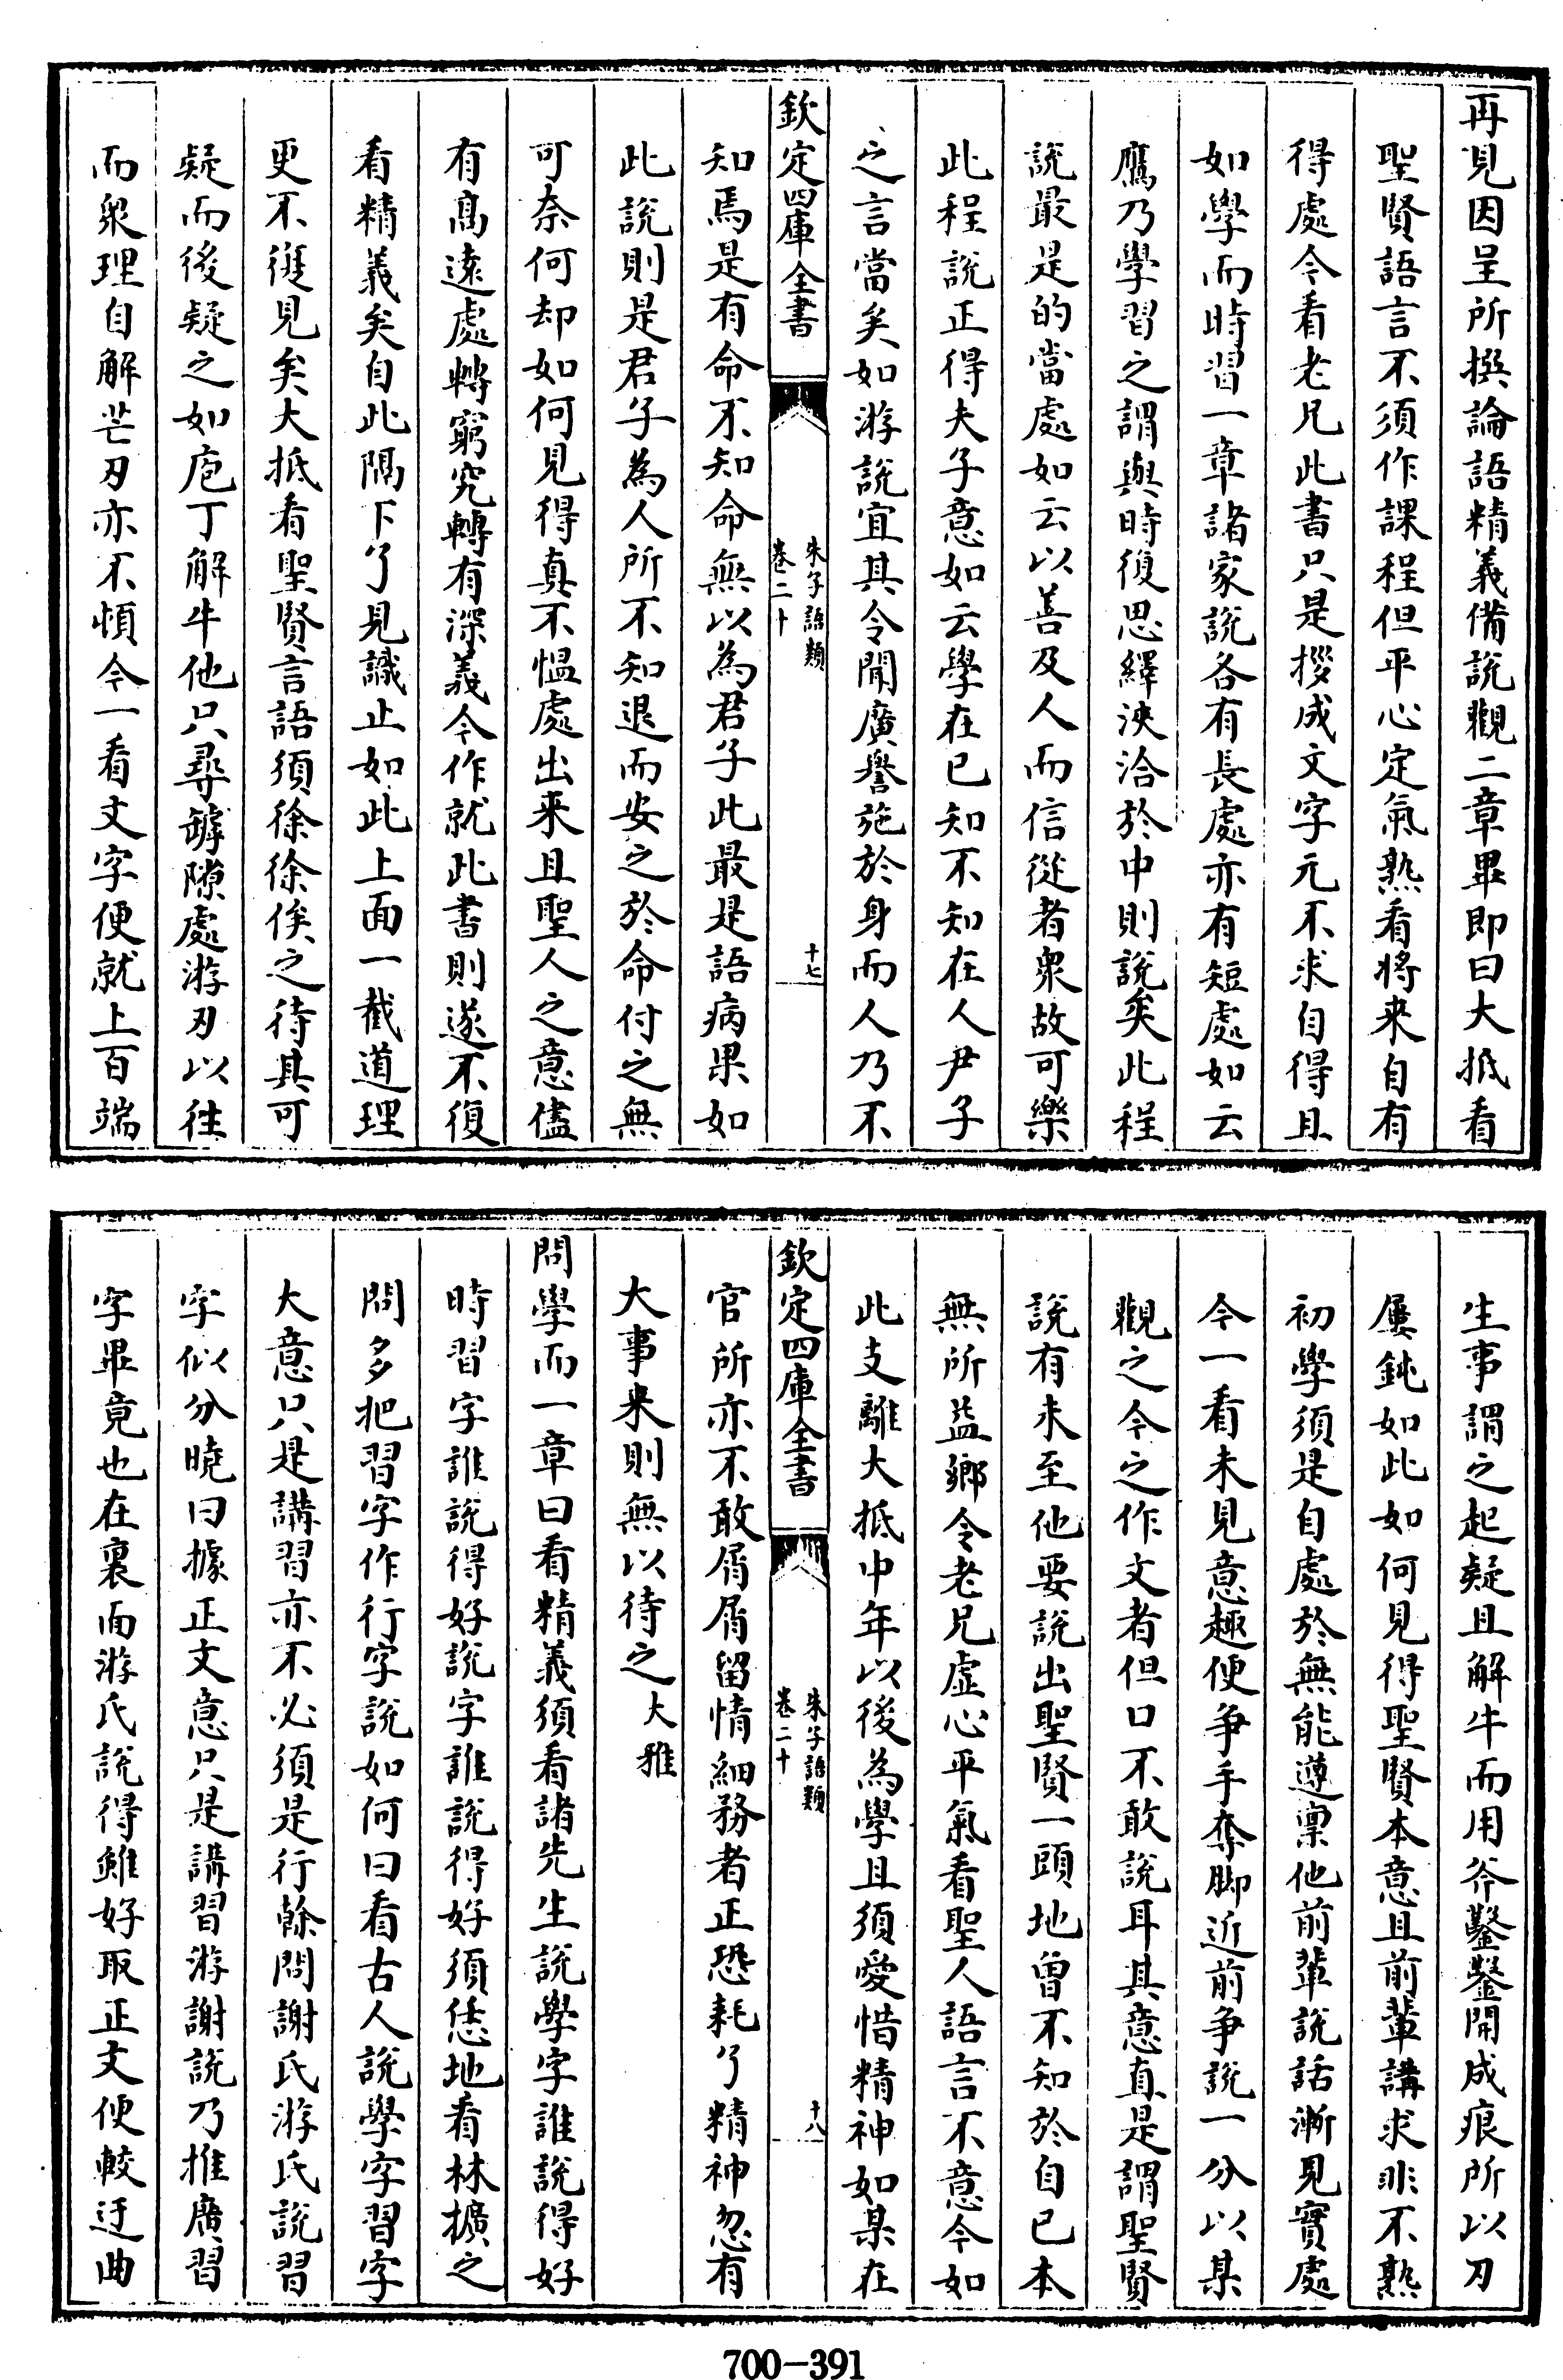 再見因呈所撰論語精義備說觀二章畢即曰大抵看
聖賢語言不須作課程但平心定氣熟看將來自有
得處今看老兄此書只是拶成文字元不求自得且
如學而時習一章諸家說各有長處亦有短處如云
鷹乃學習之謂與時復思繹浹洽於中則說矣此程
說最是的當處如云以善及人而信從者衆故可樂
此程說正得夫子意如云學在已知不知在人尹子
之言當矣如游說宜其令聞廣譽施於身而人乃不
欽定四庫全書
朱子語類
卷二十
十七
知焉是有命不知命無以為君子此最是語病果如
此說則是君子為人所不知退而安之於命付之無
可奈何却如何見得真不愠處出來且聖人之意儘
有髙遠處轉窮究轉有深義今作就此書則遂不復
看精義矣自此隔下了見識止如此上面一截道理
更不復見矣大抵看聖賢言語須徐徐俟之待其可
疑而後疑之如庖丁解牛他只尋罅隙處游刃以往
而衆理自解芒刃亦不頓今一看文字便就上百端
生事謂之起疑且解牛而用斧鑿鑿開成痕所以刃
屢鈍如此如何見得聖賢本意且前輩講求非不熟
初學須是自處於無能遵禀他前輩說話漸見實處
今一看未見意趣便爭手奪脚近前爭說一分以某
觀之今之作文者但口不敢說耳其意直是謂聖賢
說有未至他要說出聖賢一頭地曽不知於自己本
無所益鄉令老兄虛心平氣看聖人語言不意今如
此支離大抵中年以後為學且須愛惜精神如某在
欽定四庫全書
朱子語類
卷二十
十八
官所亦不敢屑屑留情細務者正恐耗了精神忽有
大事來則無以待之大雅
問學而一章曰看精義須看諸先生說學字誰說得好
時習字誰說得好說字誰說得好須恁地看林擴之
問多把習字作行字說如何曰看古人說學字習字
大意只是講習亦不必須是行幹問謝氏游氏說習
字似分曉曰據正文意只是講習游謝說乃推廣習
字畢竟也在裏面游氏說得雖好取正文便較迂曲
700-391